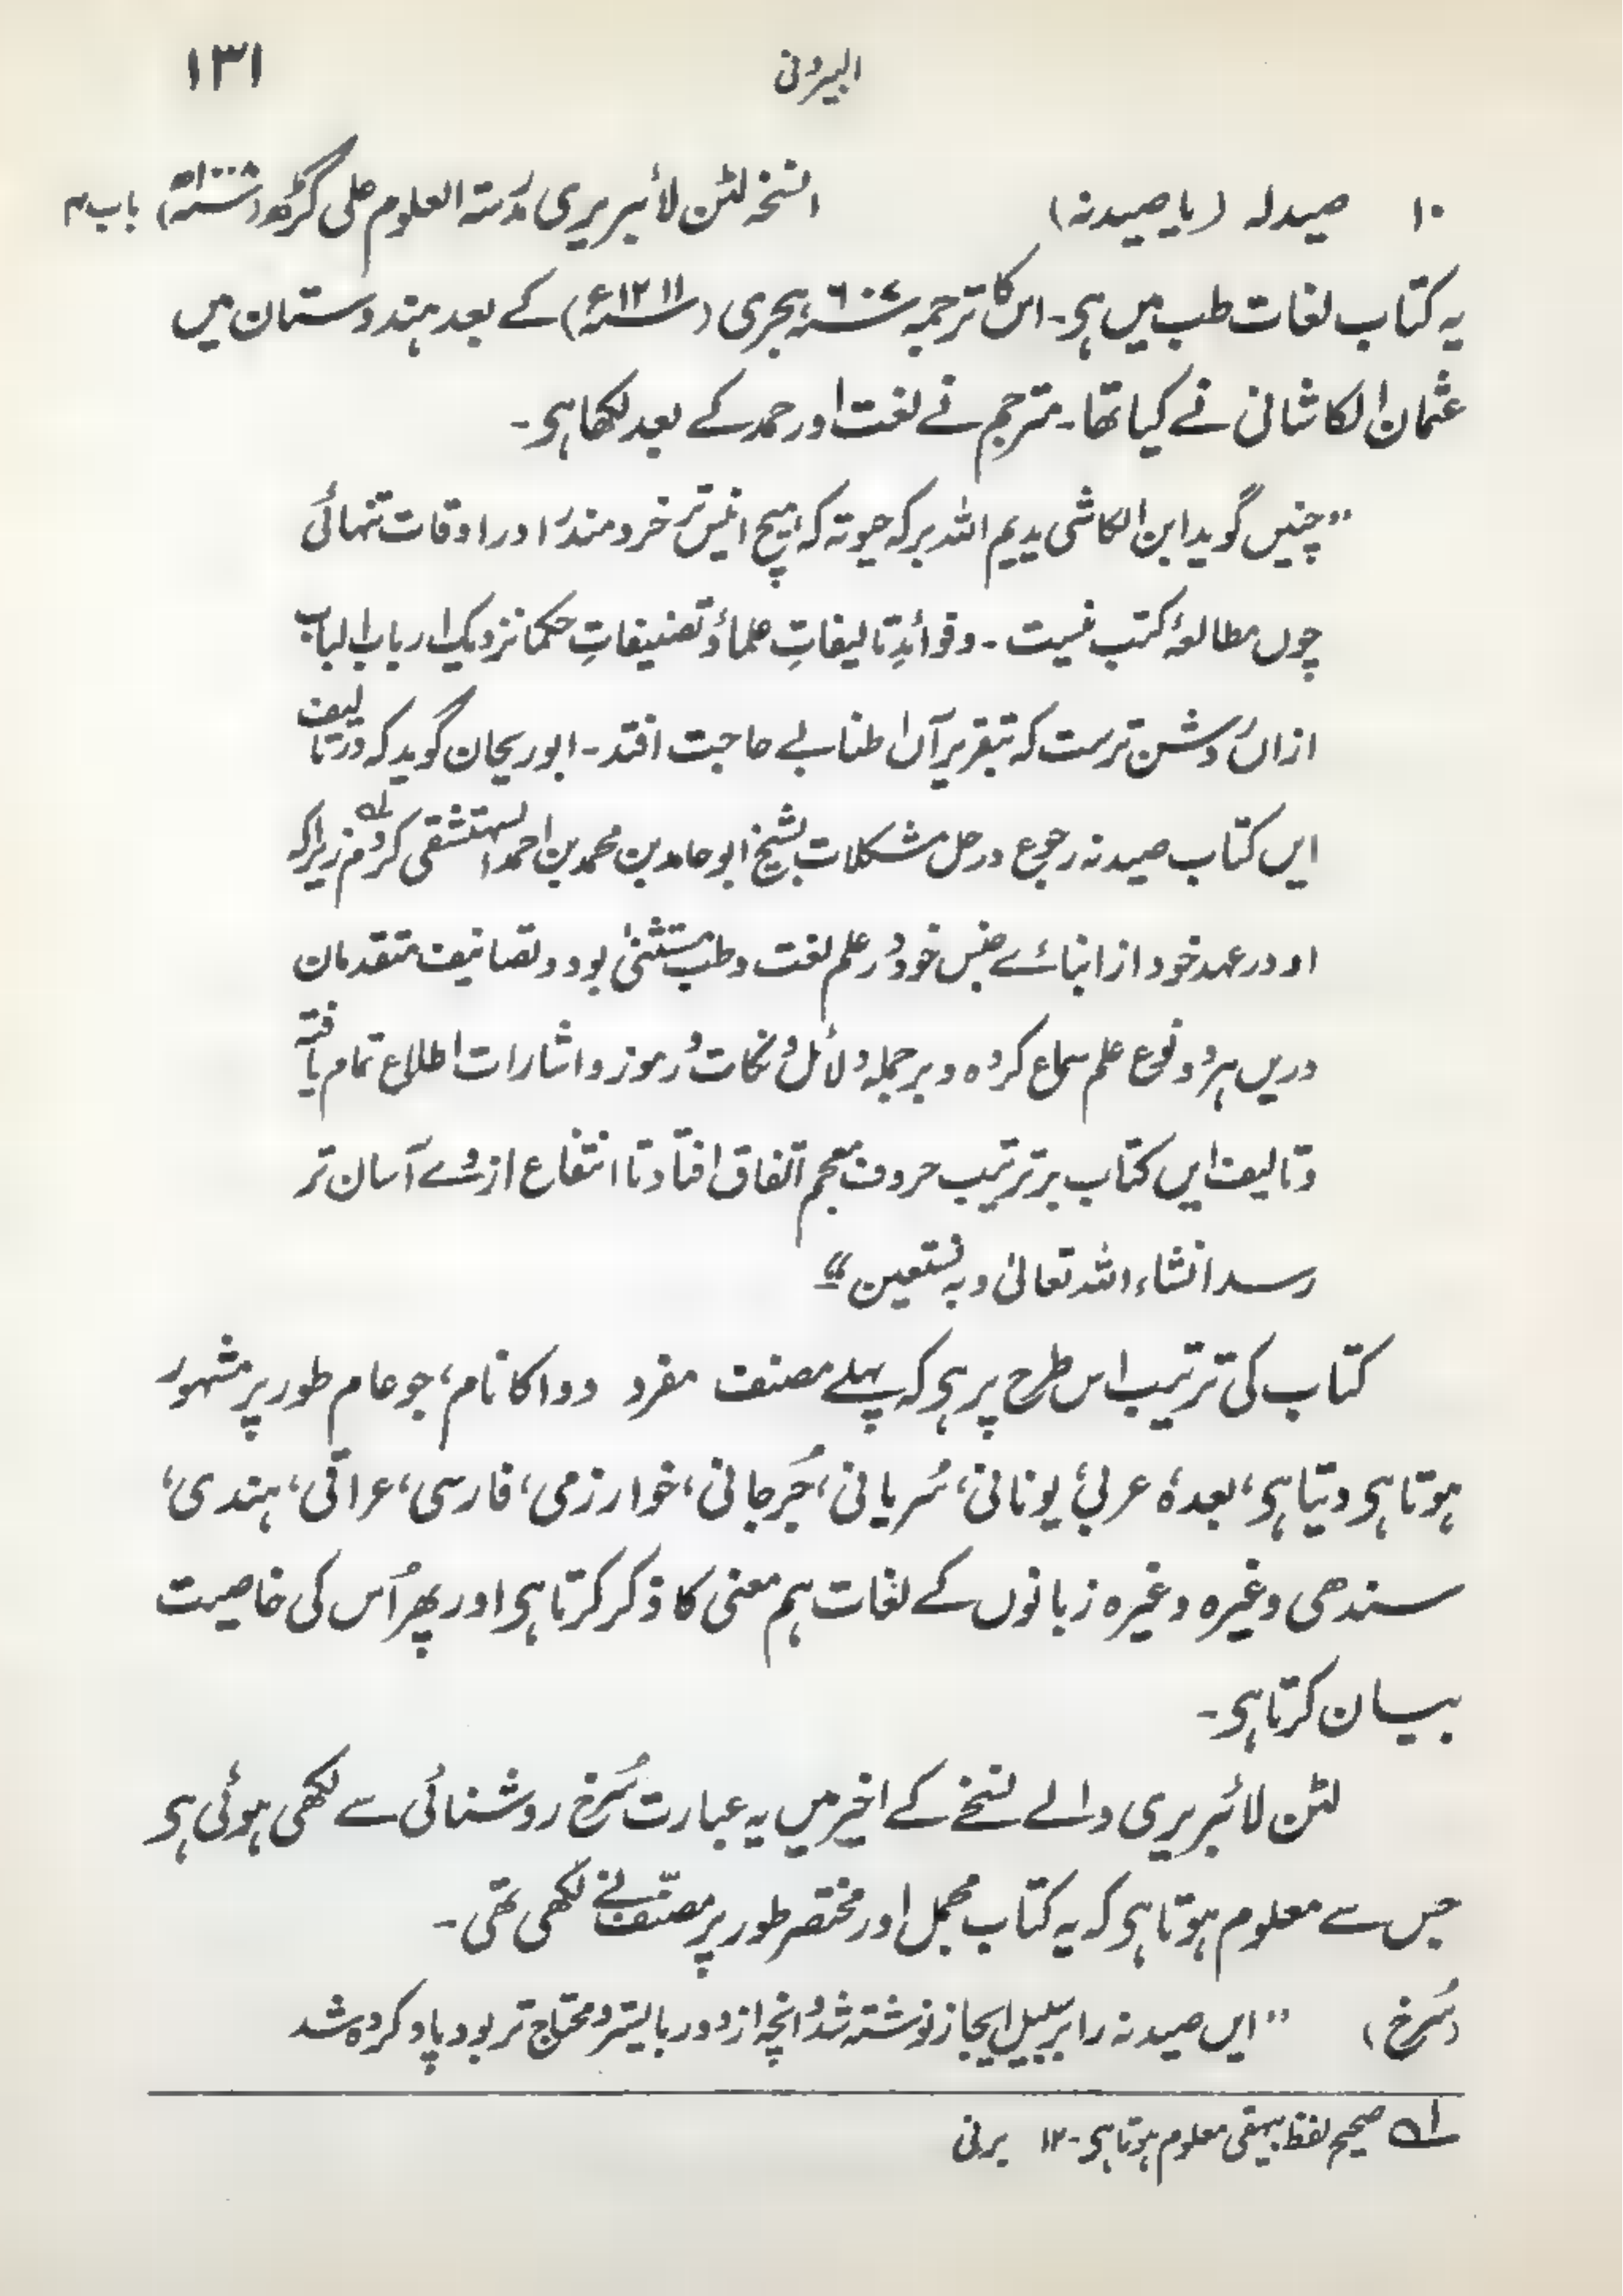 البیرونی ۱۳۱
۱۰ صیدلہ (یا صیدنہ) النسخہ لٹن لائبریری مدرستہ العلوم علی گڑھ باب ۳
یہ کتاب لغات طب میں ہی۔ اس کا ترجمہ ۶۰۷ ہجری (۱۲۱۱ء) کے بعد ہندوستان میں
عثمان الکاشانی نے کیا تھا۔ مترجم نے لغت اور حمد کے بعد لکھا ہی۔
”چنیں گوید ابن الکاشی یدیم اللہ برکہ حیوتہ کہ ہیچ انیس تر خردمند را در اوقات تنہائی
چوں مطالعۂ کتب نیست۔ و فوائدِ تالیفاتِ علما و تصنیفاتِ حکما نزدیک ارباب الباب
ازاں روشن ترست کہ بتقریر آں اطنابے حاجت افتد۔ ابوریحان گوید کہ در تالیف
ایں کتاب صیدنہ رجوع در حل مشکلات بشیخ ابو حامد بن محمد بن احمد النہتشقی لہ کردم زیرا کہ
او در عہد خود از ابنائے جنس خود در علم لغت و طب مستثنیٰ بود و تصانیف متقدمان
دریں ہر دو نوع علم سماع کردہ و بر جملہ دلائل و نکات و رموز و اشارات اطلاع تمام یافتہ
و تالیف ایں کتاب بر ترتیب حروف معجم اتفاق افتاد تا انتفاع از وے آسان تر
رسد انشاء اللہ تعالیٰ و بہ نستعین“
کتاب کی ترتیب اس طرح پر ہی کہ پہلے مصنف مفرد دوا کا نام، جو عام طور پر مشہور
ہوتا ہی دیتا ہی، بعدہٗ عربی، یونانی، سُریانی، جُرجانی، خوارزمی، فارسی، عراقی، ہندی،
سندھی وغیرہ وغیرہ زبانوں کے لغات ہم معنی کا ذکر کرتا ہی اور پھر اُس کی خاصیت
بیان کرتا ہی۔
لٹن لائبریری والے نسخے کے اخیر میں یہ عبارت سُرخ روشنائی سے لکھی ہوئی ہی
جس سے معلوم ہوتا ہی کہ یہ کتاب مجمل اور مختصر طور پر مصنّف نے لکھی تھی۔
(سُرخ) ”ایں صیدنہ را بر سبیل ایجاز نوشتہ شد و انچہ ازو در بایستر و محتاج تر بود یاد کردہ شد
لہ صحیح لفظ بیہقی معلوم ہوتا ہی۔ ۱۲ برنی